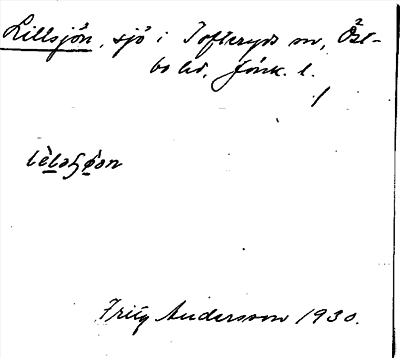 Lillsjön, sjö i Tofteryds sn, Öst-
bo hd, Jönk. l.
Fritz Andersson 1930.